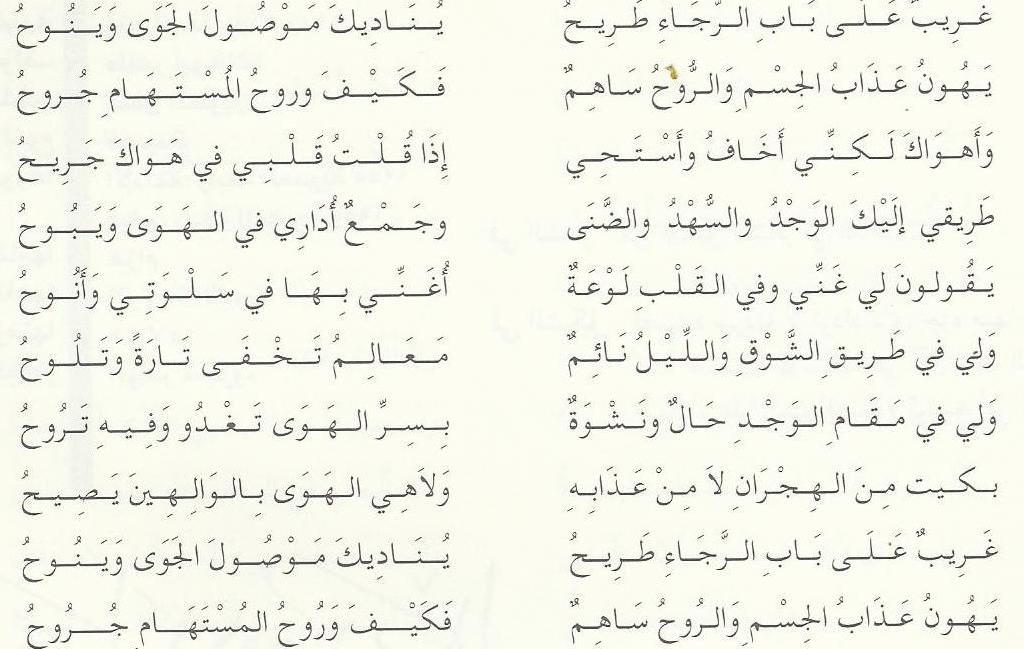 غَرِيبٌ عَلَى بَابِ الرَّجَاءِ طَرِيحُ يُنَادِيكَ مَوْصُولَ الجَوَى وَيَنُوحُ
يَهُونُ عَذَابُ الجِسْمِ وَالرُّوحُ سَاهِمٌ فَكَيْفَ وروحُ المُسْتَهَامِ جُروحُ
وَأَهوَاكَ لَكِنِّي أَخَافُ وأَسْتَحِي إِذَا قُلْتُ قَلْبِي في هَوَاكَ جَرِيحُ
طَرِيقي إلَيْكَ الوَجْدُ والسُّهْدُ والضَّنَى وجَمْعٌ أُدَارِي في الهَوَى وَيَبُوحُ
يَقُولونَ لي غَنِّي وفي القَلْبِ لَوْعَةٌ أُغَنِّي بِهَا في سَلْوَتِي وَأَنُوحُ
وَلي في طَرِيقِ الشَّوْقِ وَاللَّيْلُ نَائِمٌ مَعَالِمُ تَخْفَى تَارَةً وَتَلُوحُ
وَلي في مَقَامِ الوَجْدِ حَالٌ ونَشْوَةٌ بِسِرِّ الهَوَى تَغْدُو وَفِيهِ تَرُوحُ
بكيت مِنَ الهِجْرَانِ لاَ مِنْ عَذَابِهِ وَلاَهِي الهَوَى بِالوَالِهِينَ يَصِيحُ
غَرِيبٌ عَلَى بَابِ الرَّجَاءِ طَرِيحُ يُنَادِيكَ مَوْصُولَ الجَوَى وَيَنُوحُ
يَهُونُ عَذَابُ الجِسْمِ وَالرُوحُ سَاهِمٌ فَكَيْفَ وَرُوحُ المُسْتَهَامِ جُرُوحُ